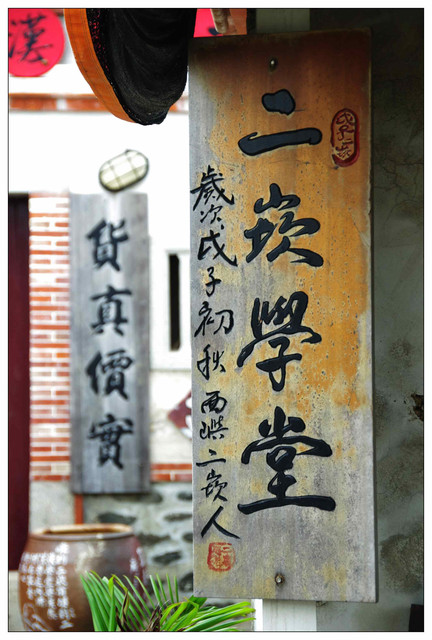 二崁學堂
歲次戊子初秋西嶼二崁人
貨真價實
漢